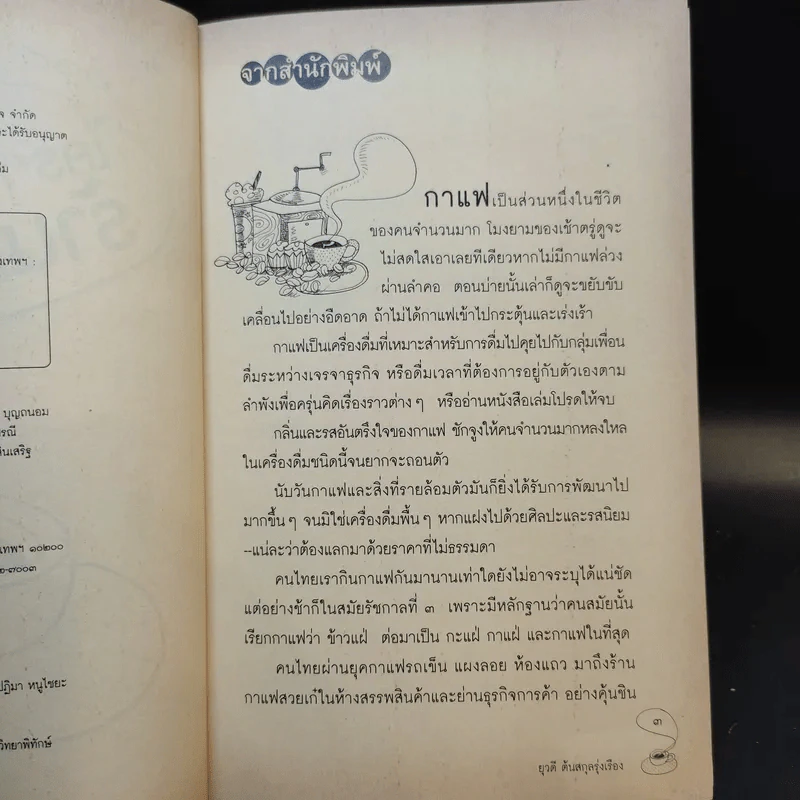 จ จำกัด
ะได้รับอนุญาต
งเทพฯ :
บุญถนอม
รณี
ันเสริฐ
ทพฯ ๑๐๒๐๐
๒-๗๐๐๓
ปฏิมา หนูไชยะ
วิทยาพิทักษ์
จากสำนักพิมพ์
กาแฟเป็นส่วนหนึ่งในชีวิต
ของคนจำนวนมาก โมงยามของเช้าตรู่ดูจะ
ไม่สดใสเอาเลยทีเดียวหากไม่มีกาแฟล่วง
ผ่านลำคอ ตอนบ่ายนั้นเล่าก็ดูจะขยับขับ
เคลื่อนไปอย่างอืดอาด ถ้าไม่ได้กาแฟเข้าไปกระตุ้นและเร่งเร้า
กาแฟเป็นเครื่องดื่มที่เหมาะสำหรับการดื่มไปคุยไปกับกลุ่มเพื่อน
ดื่มระหว่างเจรจาธุรกิจ หรือดื่มเวลาที่ต้องการอยู่กับตัวเองตาม
ลำพังเพื่อครุ่นคิดเรื่องราวต่าง ๆ หรืออ่านหนังสือเล่มโปรดให้จบ
กลิ่นและรสอันตรึงใจของกาแฟ ชักจูงให้คนจำนวนมากหลงใหล
ในเครื่องดื่มชนิดนี้จนยากจะถอนตัว
นับวันกาแฟและสิ่งที่รายล้อมตัวมันก็ยิ่งได้รับการพัฒนาไป
มากขึ้น ๆ จนมิใช่เครื่องดื่มพื้น ๆ หากแฝงไปด้วยศิลปะและรสนิยม
--แน่ละว่าต้องแลกมาด้วยราคาที่ไม่ธรรมดา
คนไทยเรากินกาแฟกันมานานเท่าใดยังไม่อาจระบุได้แน่ชัด
แต่อย่างช้าก็ในสมัยรัชกาลที่ ๓ เพราะมีหลักฐานว่าคนสมัยนั้น
เรียกกาแฟว่า ข้าวแฝ่ ต่อมาเป็น กะแฝ่ กาแฝ่ และกาแฟในที่สุด
คนไทยผ่านยุคกาแฟรถเข็น แผงลอย ห้องแถว มาถึงร้าน
กาแฟสวยเก๋ในห้างสรรพสินค้าและย่านธุรกิจการค้า อย่างคุ้นชิน
๓
ยุวดี ต้นสกุลรุ่งเรือง